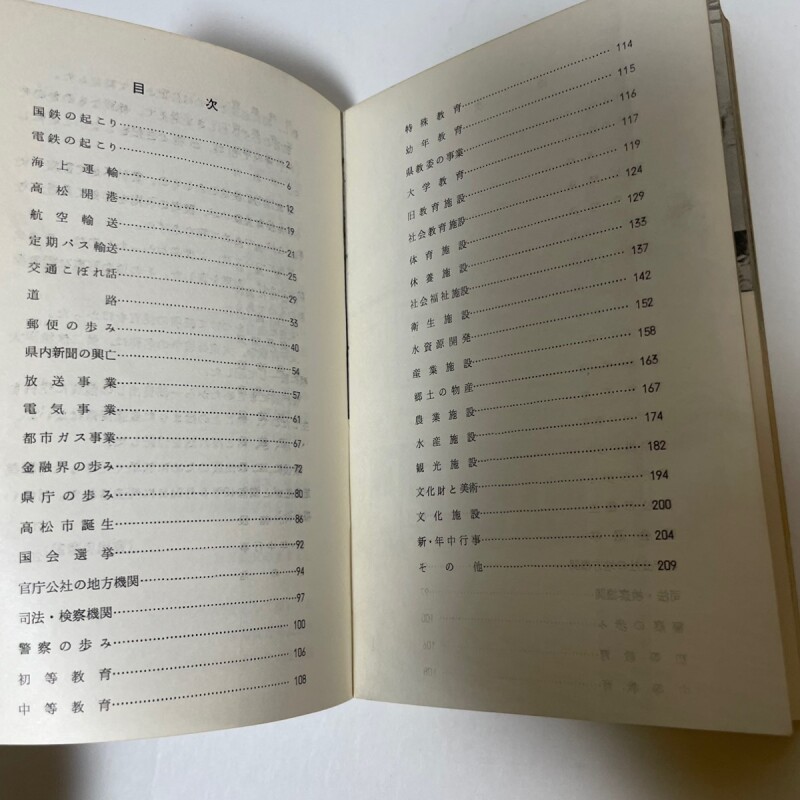 目次
国鉄の起こり……2
電鉄の起こり……6
海上運輸……12
高松開港……19
航空輸送……21
定期バス輸送……25
交通こぼれ話……29
道路……33
郵便の歩み……40
県内新聞の興亡……54
放送事業……57
電気事業……61
都市ガス事業……67
金融界の歩み……72
県庁の歩み……80
高松市誕生……86
国会選挙……92
官庁公社の地方機関……94
司法・検察機関……97
警察の歩み……100
初等教育……106
中等教育……108
特殊教育……114
幼年教育……115
県教委の事業……116
大学教育……117
旧教育施設……119
社会教育施設……124
体育施設……129
休養施設……133
社会福祉施設……137
衛生施設……142
水資源開発……152
産業施設……158
郷土の物産……163
農業施設……167
水産施設……174
観光施設……182
文化財と美術……194
文化施設……200
新・年中行事……204
その他……209